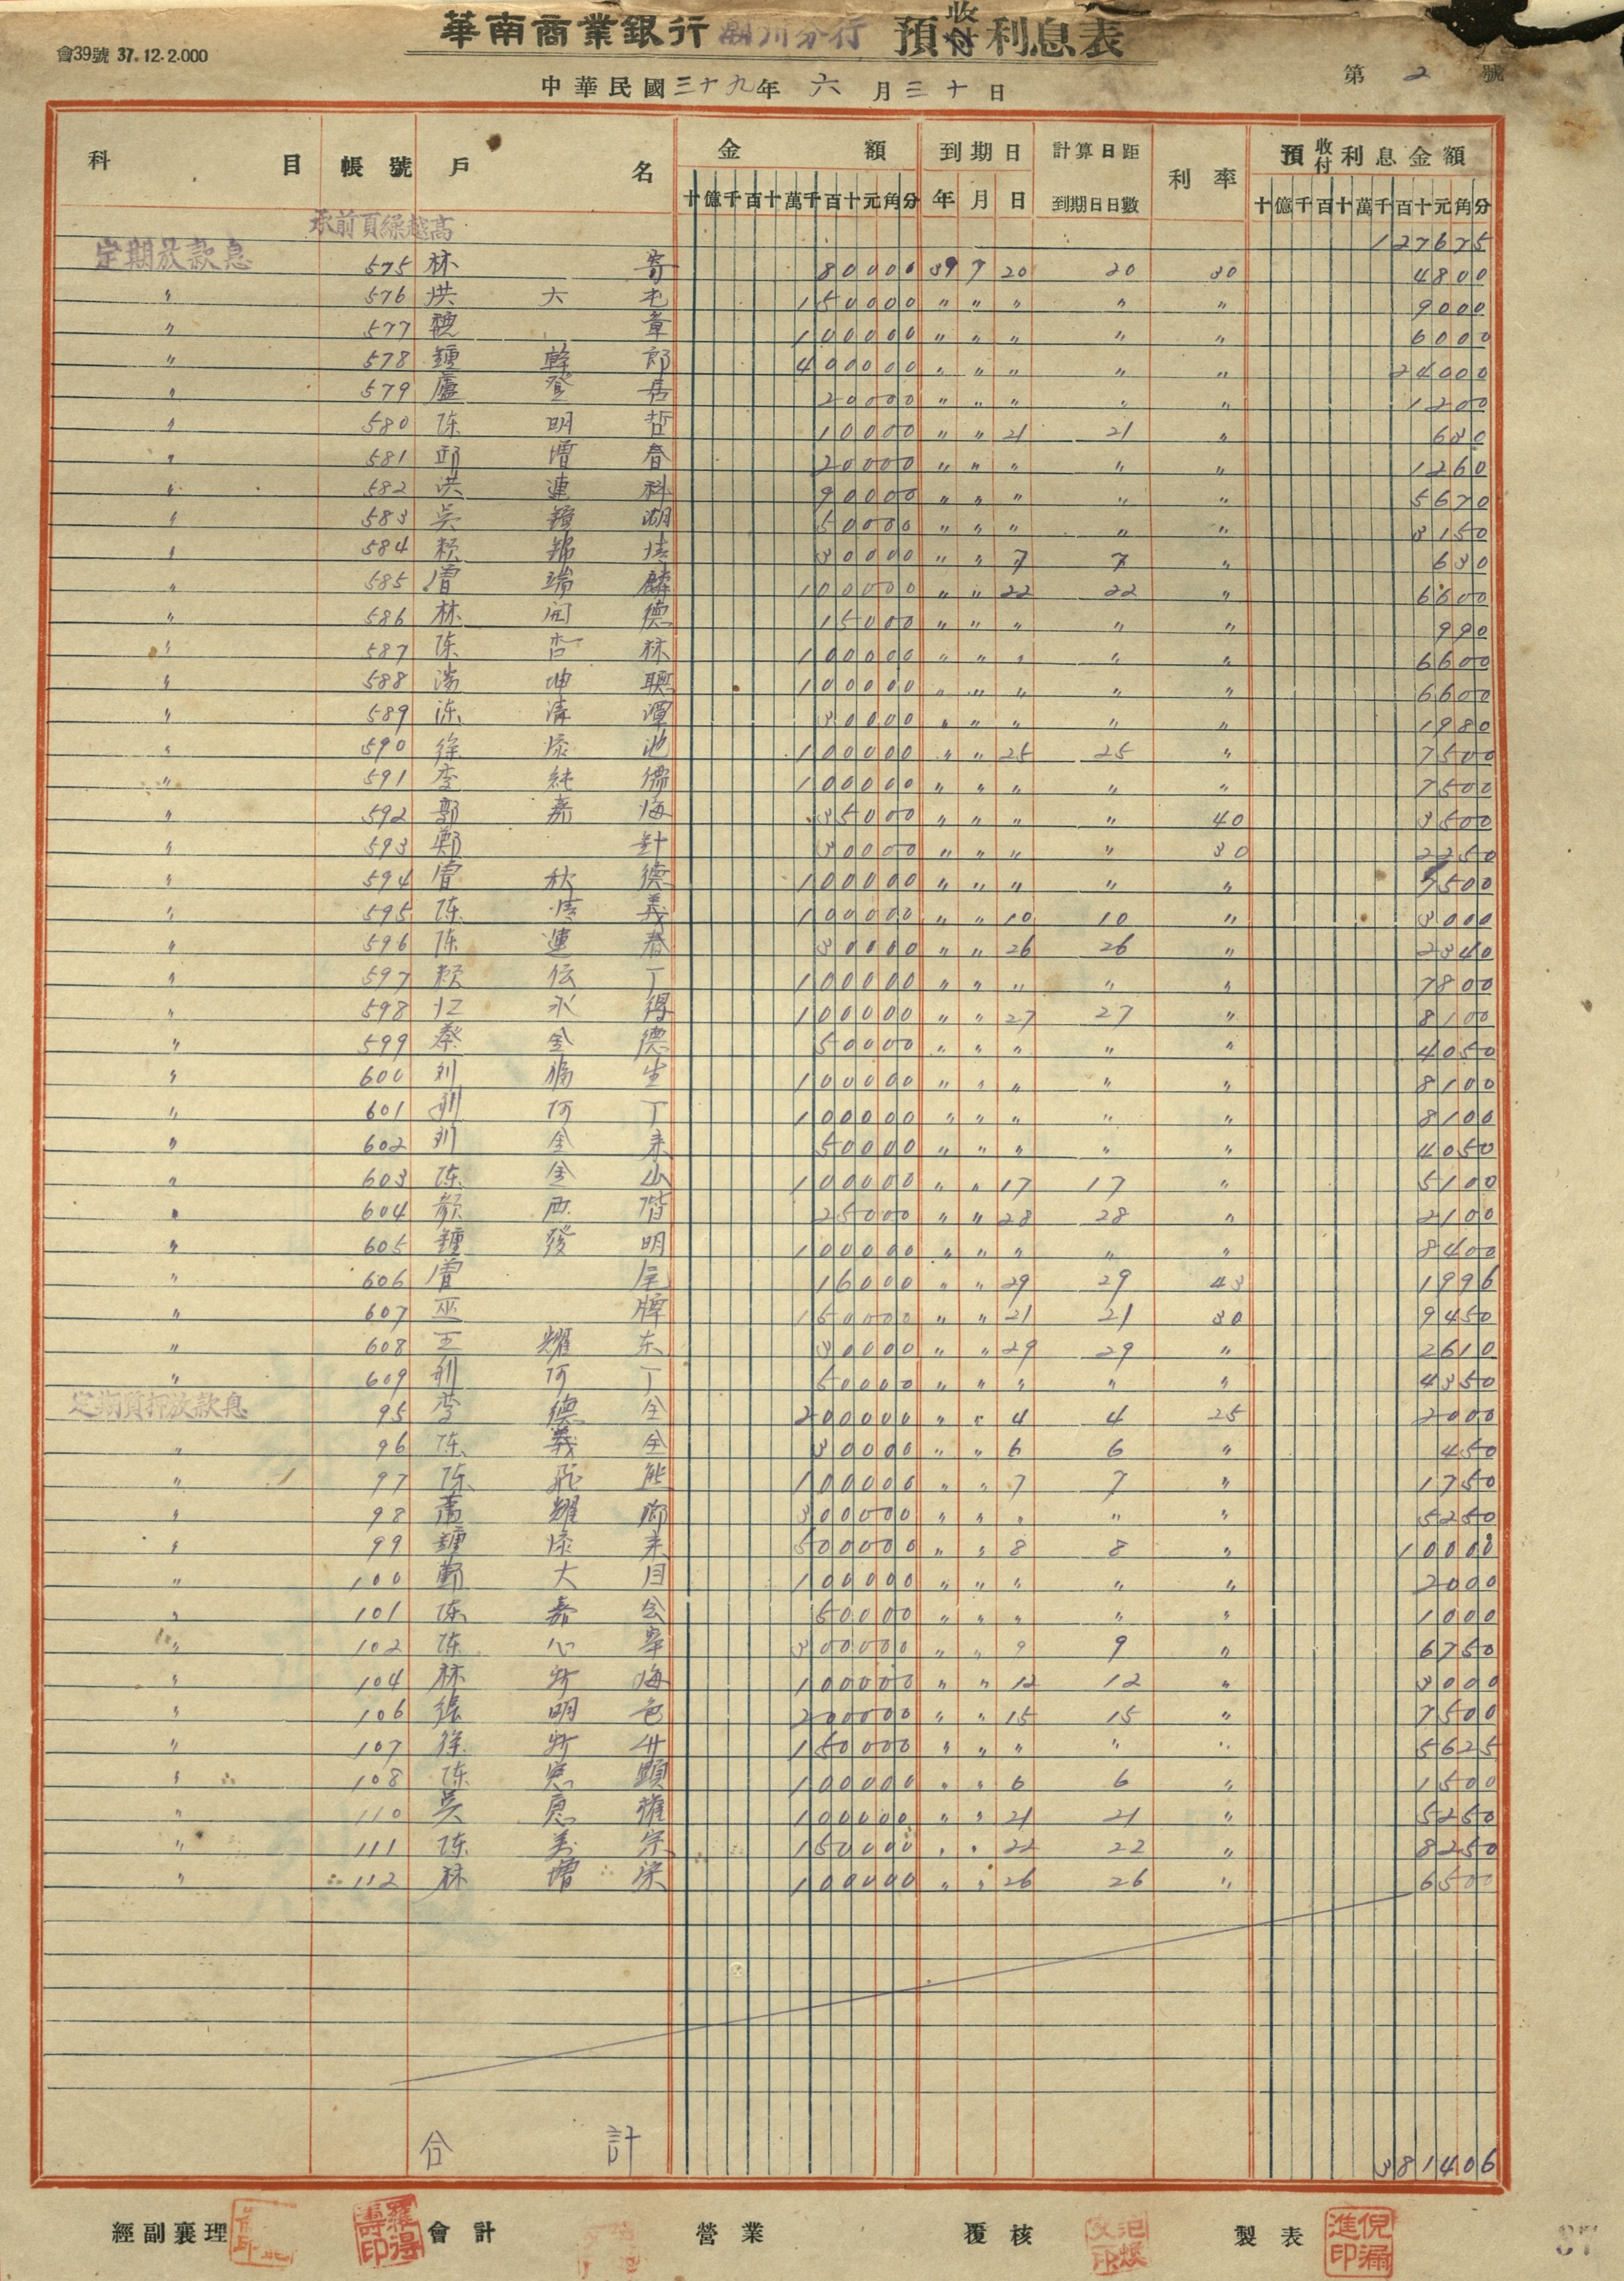 會39號 37.12.2.000
華南商業銀行 分行 預收利息表
第 2 號
中華民國三十九年 六 月 三十 日
科目 帳號 戶名 金額 到期日 計算日距到期日日數 利率 預收付利息金額
十億千百十萬千百十元角分 年 月 日 十億千百十萬千百十元角分
承前頁 127675
定期放款息 575 林 80000 39 7 20 20 30 4800
〃 576 洪 大 150000 〃 〃 〃 〃 〃 9000
〃 577 魏 章 100000 〃 〃 〃 〃 〃 6000
〃 578 鍾 郎 400000 〃 〃 〃 〃 〃 24000
〃 579 盧 登 20000 〃 〃 〃 〃 〃 1200
〃 580 陈 明 哲 10000 〃 〃 21 21 〃 630
〃 581 邱 增 春 20000 〃 〃 〃 〃 〃 1260
〃 582 洪 連 科 90000 〃 〃 〃 〃 〃 5670
〃 583 吳 湖 50000 〃 〃 〃 〃 〃 3150
〃 584 賴 錦 30000 〃 〃 7 7 〃 630
〃 585 曾 瑞 麟 100000 〃 〃 22 22 〃 6600
〃 586 林 開 德 15000 〃 〃 〃 〃 〃 990
〃 587 陈 林 100000 〃 〃 〃 〃 〃 6600
〃 588 坤 100000 〃 〃 〃 〃 〃 6600
〃 589 陈 清 潭 30000 〃 〃 〃 〃 〃 1980
〃 590 徐 添 池 100000 〃 〃 25 25 〃 7500
〃 591 李 純 儒 100000 〃 〃 〃 〃 〃 7500
〃 592 郭 嘉 海 35000 〃 〃 〃 〃 40 3500
〃 593 鄭 針 30000 〃 〃 〃 〃 30 2250
〃 594 曾 秋 德 100000 〃 〃 〃 〃 〃 7500
〃 595 陈 義 100000 〃 〃 10 10 〃 3000
〃 596 陈 連 春 30000 〃 〃 26 26 〃 2340
〃 597 賴 伝 丁 100000 〃 〃 〃 〃 〃 7800
〃 598 江 水 得 100000 〃 〃 27 27 〃 8100
〃 599 蔡 金 德 50000 〃 〃 〃 〃 〃 4050
〃 600 刘 生 100000 〃 〃 〃 〃 〃 8100
〃 601 刘 阿 丁 100000 〃 〃 〃 〃 〃 8100
〃 602 刘 金 来 50000 〃 〃 〃 〃 〃 4050
〃 603 陈 金 山 100000 〃 〃 17 17 〃 5100
〃 604 顏 西 階 25000 〃 〃 28 28 〃 2100
〃 605 鍾 發 明 100000 〃 〃 〃 〃 〃 8400
〃 606 曾 屘 16000 〃 〃 29 29 43 1996
〃 607 巫 牌 150000 〃 〃 21 21 30 9450
〃 608 王 耀 东 30000 〃 〃 29 29 〃 2610
〃 609 刘 阿 丁 50000 〃 〃 〃 〃 〃 4350
定期質押放款息 95 李 德 全 200000 〃 〃 4 4 25 2000
〃 96 陈 義 全 30000 〃 〃 6 6 〃 450
〃 97 陈 飛 熊 100000 〃 〃 7 7 〃 1750
〃 98 蕭 耀 卿 300000 〃 〃 〃 〃 〃 5250
〃 99 鍾 添 来 500000 〃 〃 8 8 〃 10000
〃 100 大 目 100000 〃 〃 〃 〃 〃 2000
〃 101 陈 嘉 会 50000 〃 〃 〃 〃 〃 1000
〃 102 陈 心 300000 〃 〃 9 9 〃 6750
〃 104 林 所 海 100000 〃 〃 12 12 〃 3000
〃 106 張 明 色 200000 〃 〃 15 15 〃 7500
〃 107 徐 所 150000 〃 〃 〃 〃 〃 5625
〃 108 陈 憲 顕 100000 〃 〃 6 6 〃 1500
〃 110 吳 權 100000 〃 〃 21 21 〃 5250
〃 111 陈 宗 150000 〃 〃 22 22 〃 8250
〃 112 林 增 100000 〃 〃 26 26 〃 6500
合計 381406
經副襄理 會計 羅得壽印 營業 覆核 製表 倪漏進印